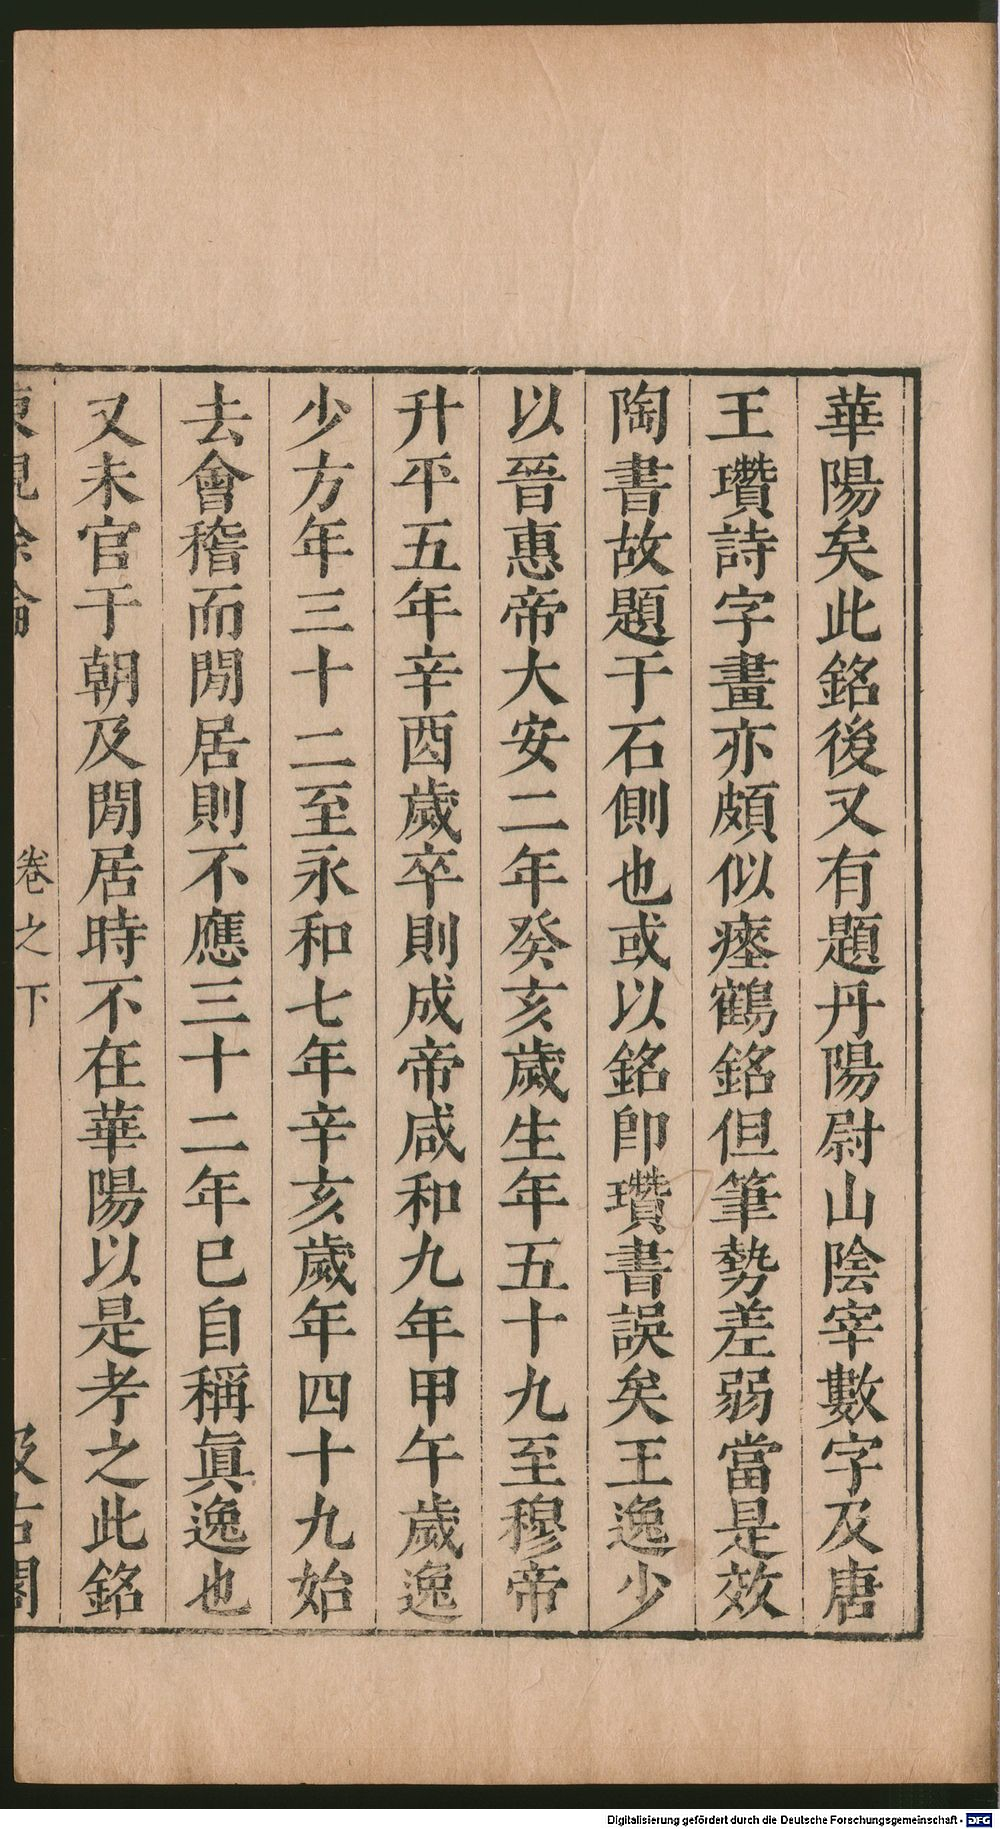 華陽矣此銘後又有題丹陽尉山陰宰數字及唐
王瓚詩字畫亦頗似瘞鶴銘但筆勢差弱當是效
陶書故題于石側也或以銘即瓚書誤矣王逸少
以晉惠帝大安二年癸亥歲生年五十九至穆帝
升平五年辛酉歲卒則成帝咸和九年甲午歲逸
少方年三十二至永和七年辛亥歲年四十九始
去會稽而閒居則不應三十二年已自稱眞逸也
又未官于朝及閒居時不在華陽以是考之此銘
東觀餘論
卷之下
汲古閣
Digitalisierung gefördert durch die Deutsche Forschungsgemeinschaft - DFG